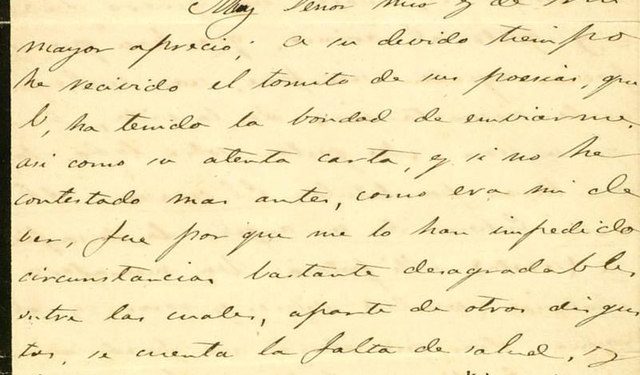 Muy Señor mio y de mi
mayor aprecio; a su devido tiempo
he recivido el tomito de sus poesias, que
V, ha tenido la bondad de enviarme,
asi como su atenta carta, y si no he
contestado mas antes, como era mi de
ber, fue por que me lo han impedido
circunstancias bastante desagradables
entre las cuales, aparte de otros disgus
tos, se cuenta la falta de salud, y